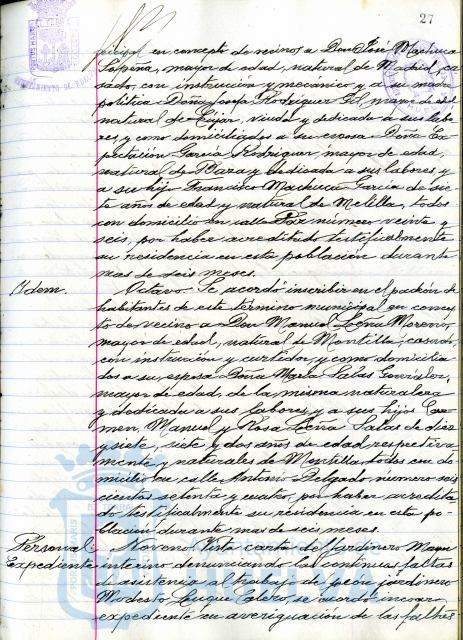 27
nicipal en concepto de vecinos a Don José Machuca
Lopriña, mayor de edad, natural de Madrid, ca
sado, con instrucción y mecánico y a su madre
política Doña Josefa Rodriguez Gil, mayor de edad
natural de Cijar, viuda y dedicada a sus labo
res, y como domiciliados a su esposa Doña Ex
pectación García Rodriguez, mayor de edad,
natural de Baza y dedicada a sus labores, y
a su hijo Francisco Machuca García de sie
te años de edad y natural de Melilla, todos
con domicilio en calle Paz número veinte y
seis, por haber acreditado testifi
su residencia en esta población durante
mas de seis meses.
Idem. Octavo. Se acordó inscribir en el padrón de
habitantes de este término municipal en concep
to de vecino a Don Manuel Moreno,
mayor de edad, natural de Montilla, casado,
con instrucción y curtidor, y como domicilia
dos a su esposa Doña María Salas Gonzalez,
mayor de edad, de la misma naturaleza
y dedicada a sus labores, y a sus hijos Car
men, Manuel y Rosa Salas de diez
y siete, siete y dos años de edad respectiva
mente y naturales de Montilla, todos con do
micilio en calle Antonio Delgado, número seis
cientos setenta y cuatro, por haber acredita
do testificalmente su residencia en esta po-
blación durante mas de seis meses.
Personal Noveno. Vista carta del Jardinero Mayor
Expediente interino denunciando las continuas faltas
d asistencia al trabajo de peón jardinero
Modesto Luque Calero, se acordó incoar
expediente en averiguación de las faltas